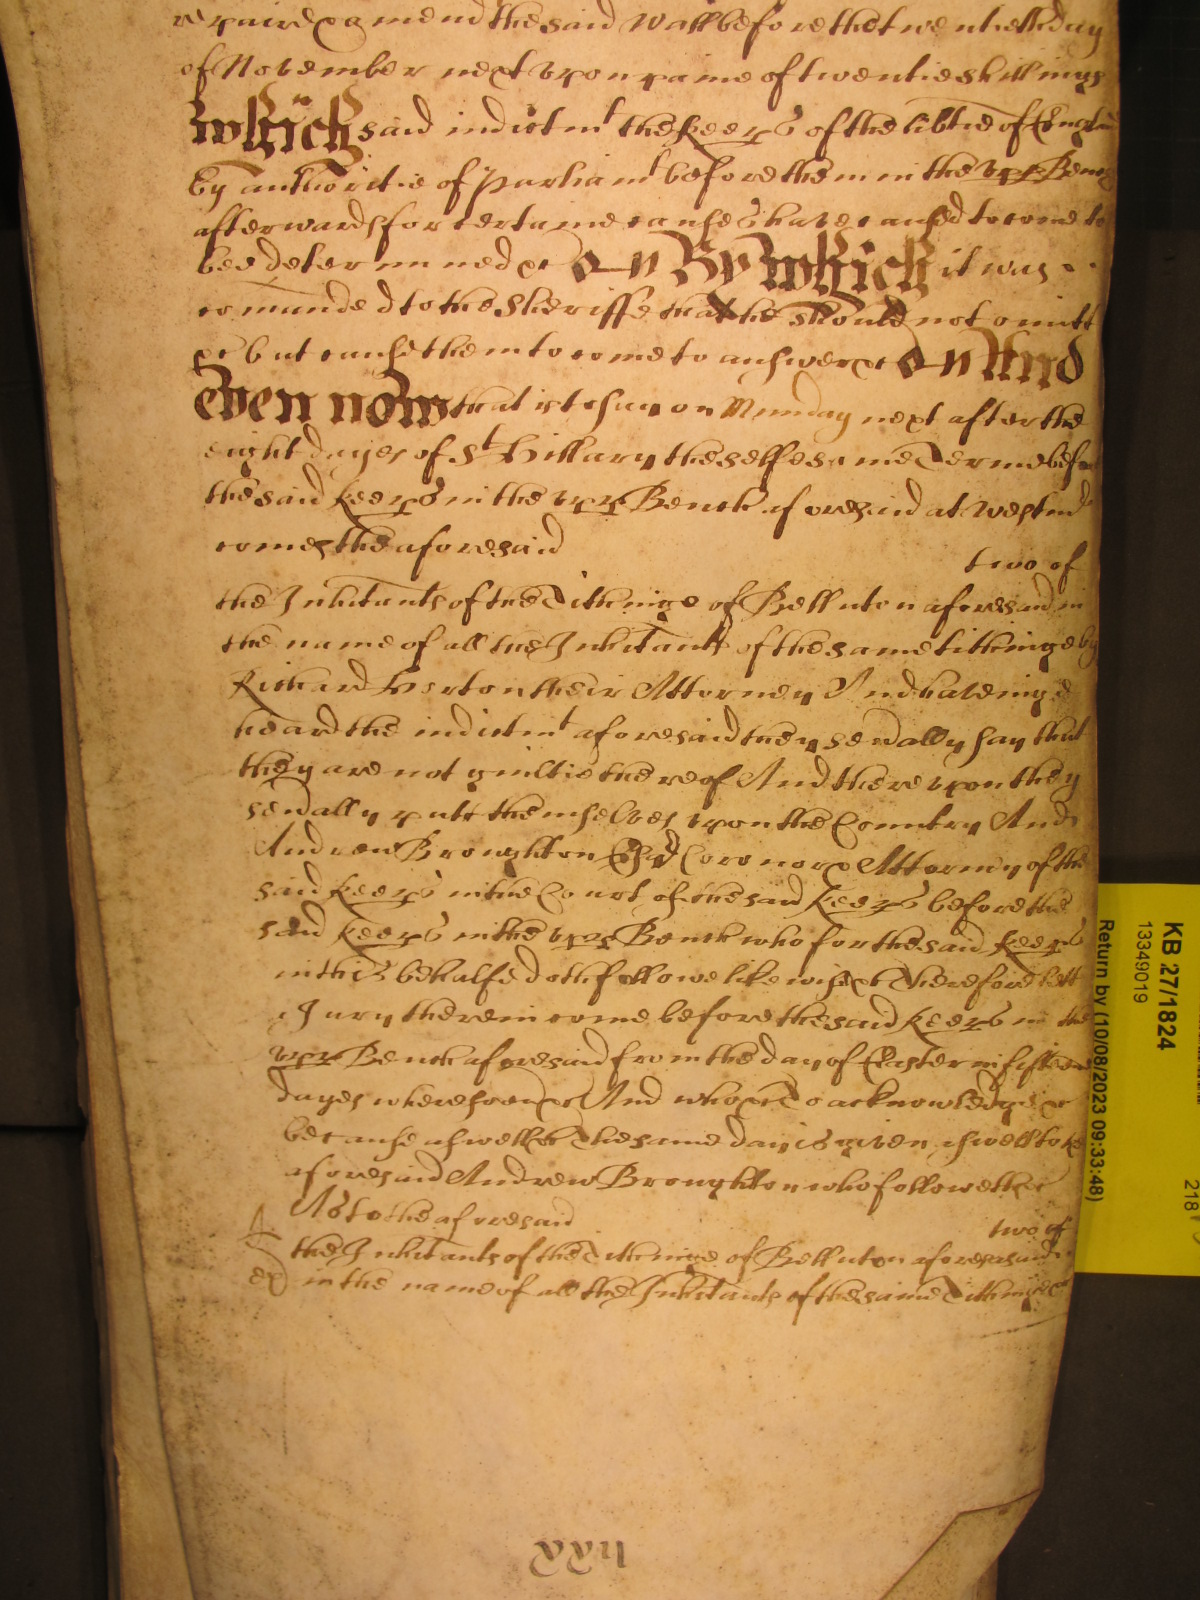 repaire & amend the said Wall before the twentieth day
of November next upon paine of twentie shillings
Which said indictmt the Keeps of the libtie of England
By authoritie of parliamt before them in the upp Bench
afterwards for certaine causes have caused to come to
bee determined &c on By Which it was
comanded to the Sheriffe that he should not omitt
&c but cause them to come to answer &c on And
even now that is to say on Munday next after the
eight dayes of St Hillary the selfesame Terme before
the said Keeps in the upp Bench aforesaid at Westmr
comes the aforesaid two of
the Inhitants of the Tithinge of Belluton aforesaid in
the name of all the Inhitants of the same tithinge by
Richard Horton their Attorney And haveinge
heard the indictmt aforesaid they sevally say that
they are not guiltie thereof And thereupon they
sevally putt themselves upon the Country And
Andrew Broughton Esqr Coronor & Attorney of the
said Keeps in the Court of the said Keeps before the
said Keeps in the upp Bench who for the said Keeps
in this behalfe doth followe likewise &c Therefore lett
a Jury therein come before the said Keeps in the
upp Bench aforesaid from the day of Easter in fifteene
dayes wheresoever &c And who &c To acknowledge &c
because aswell &c The same day is given aswell to the
aforesaid Andrew Broughton who followeth &c
As to the aforesaid two of
the Inhitants of the Tithinge of Belluton aforesaid
in the name of all the Inhitants of the same Tithinge &c
KB 27/1824
13349019
Return by (10/08/2023 09:33:48)
218